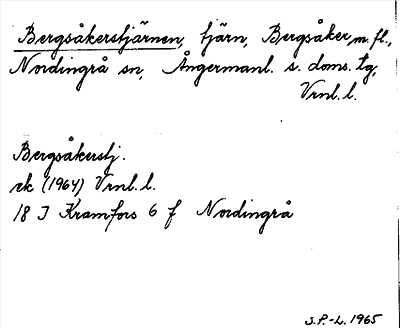 Bergsåkerstjärnen, tjärn, Bergsåker, m. fl.,
Nordingrå sn, Ångermanl. s. doms. tg,
Vrnl. l.
Bergsåkerstj.
ek (1964) Vrnl. l.
18 J Kramfors 6 f Nordingrå
S.P.-L. 1965